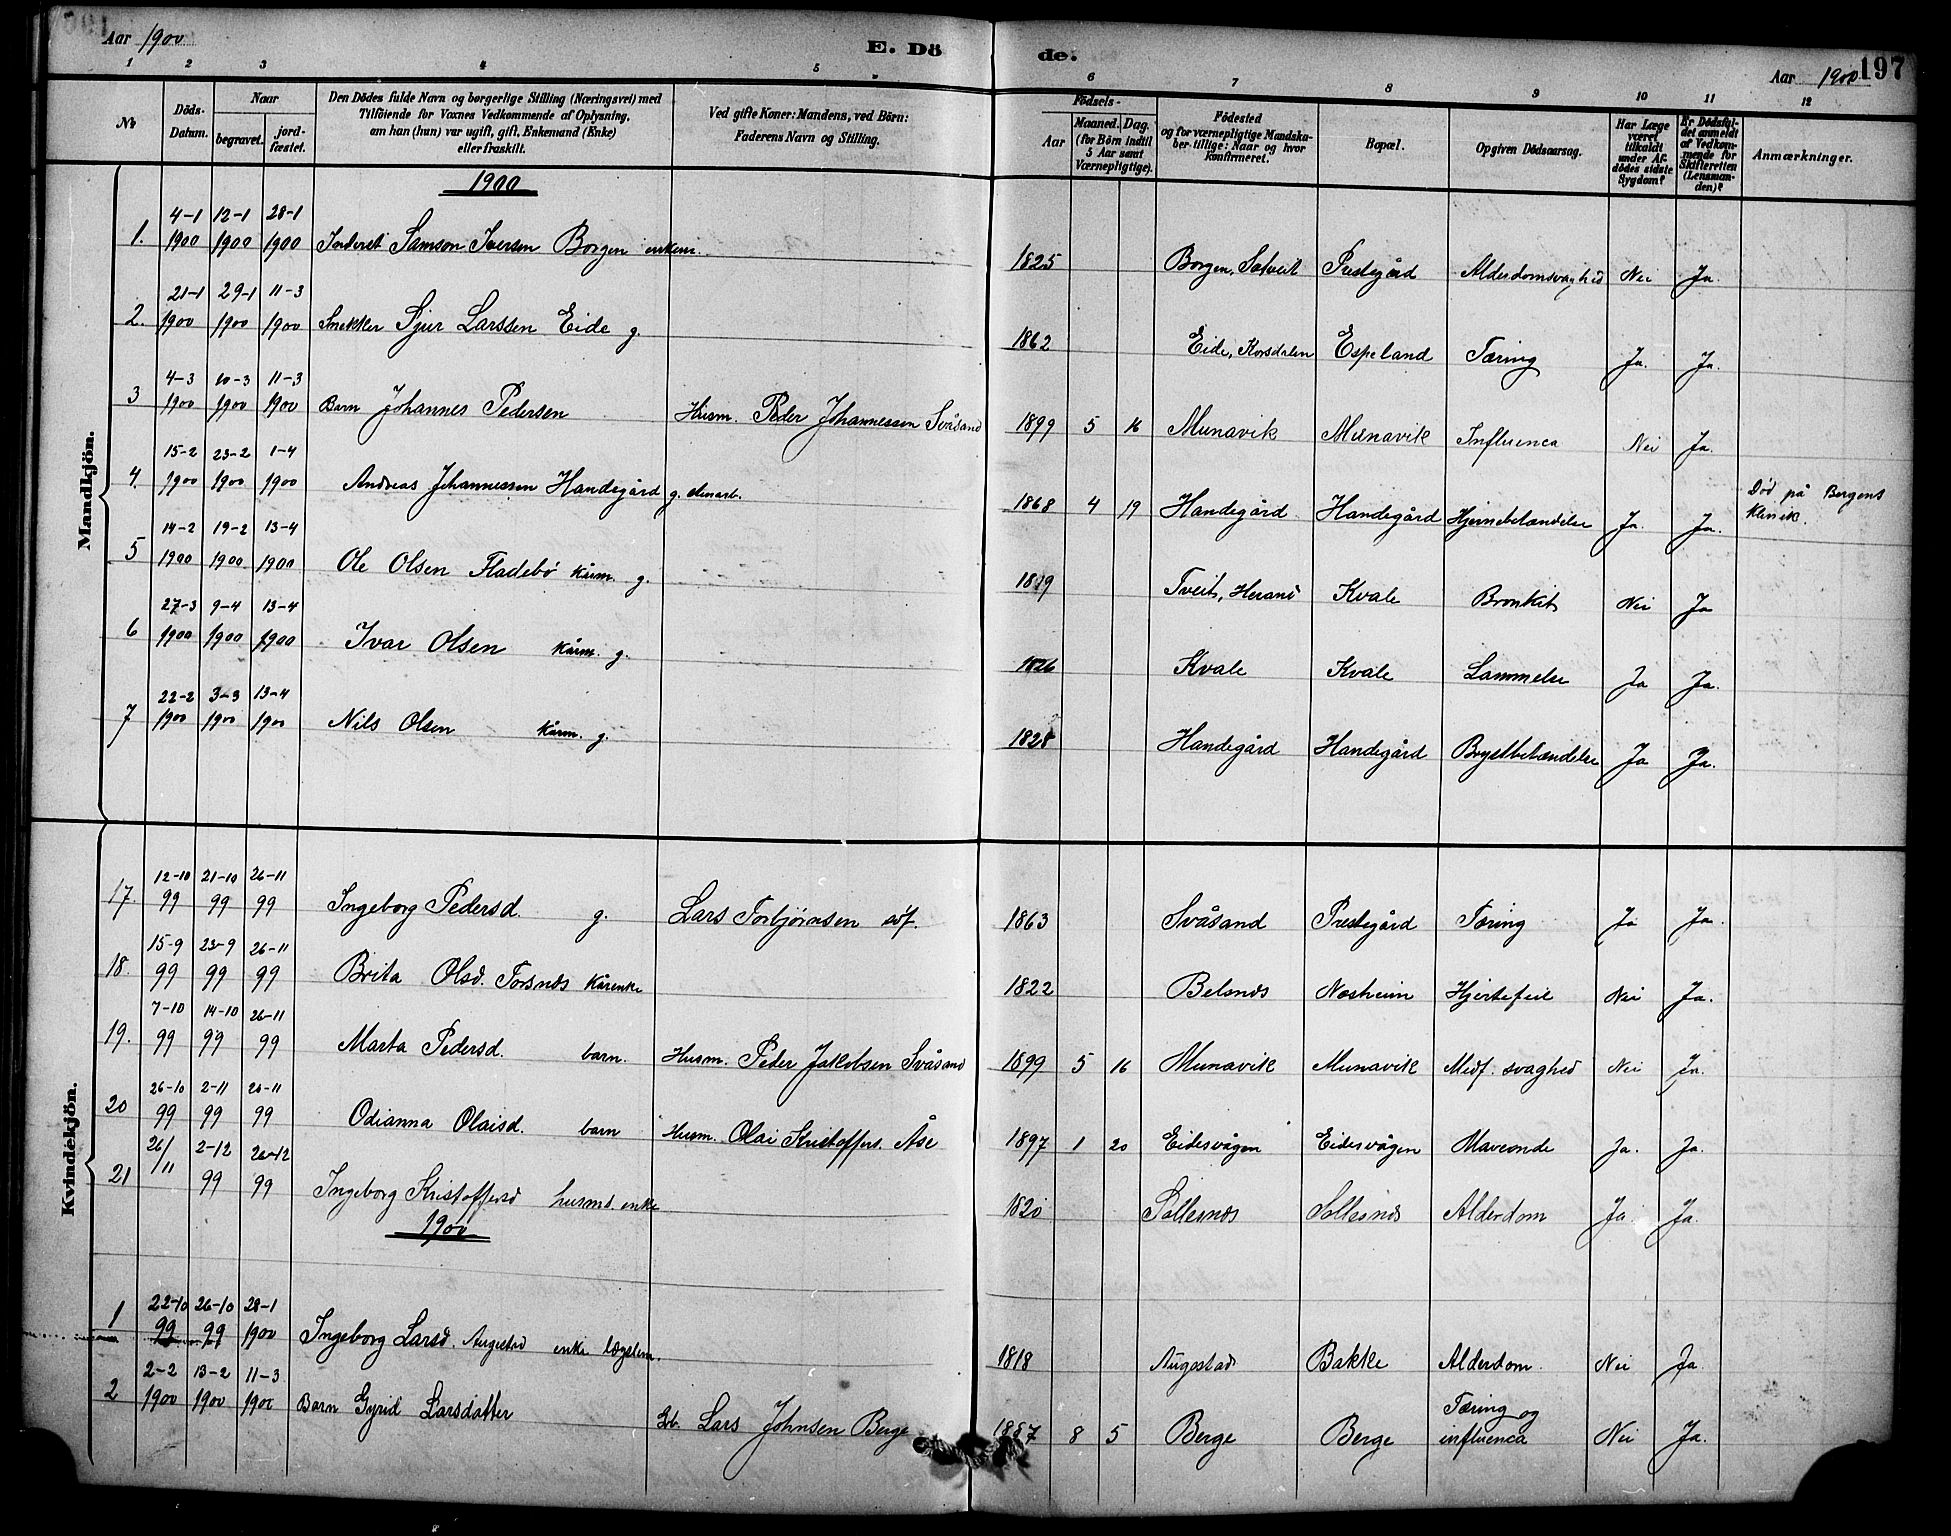 Aar 1900 E. Dö de. Aar 1900 197
1 2 3 4 5 6 7 8 9 10 11 12
No
Döds-Datum.
Naar
begravet.
jord-fæstet.
Den Dödes fulde Navn og borgerlige Stilling (Næringsvei) med
Tilföiende for Voxnes Vedkommende af Oplysning,
om han (hun) var ugift, gift, Enkemand (Enke)
eller fraskilt.
Ved gifte Koner: Mandens, ved Börn:
Faderens Navn og Stilling.
Födsels-
Aar
Maaned. Dag.
(for Börn indtil
5 Aar samt
Værnepligtige).
Födested
og for værnepligtige Mandska-
ber tillige: Naar og hvor
konfirmeret.
Bopæl.
Opgiven Dödsaarsag.
Har Læge
været
tilkaldt
under Af-
dödes sidste
Sygdom?
Er Dödsfal-
det anmeldt
af Vedkom-
mende for
Skifteretten
(Lensman-
den)?
Anmærkninger.
Mandkjön.
1900
1. 4-1 1900 12-1 1900 28-1 1900 Inderst Samson Iversen Borgen enkem. 1825 Borgen, Solveit Prestegård Alderdomsvaghed Nei Ja.
2. 21-1 1900 29-1 1900 11-3 1900 Snekker Sjur Larssen Eide g. 1862 Eide, Korsdalen Espeland Tæring Ja. Ja.
3 4-3 1900 10-3 1900 11-3 1900 Barn Johannes Pedersen Husm. Peder Johannessen Svåsand 1899 5 16 Munavik Munavik Influenca Nei Ja.
4. 15-2 1900 23-2 1900 1-4 1900 Andreas Johannessen Handegård g. 1868 4 19 Handegård Handegård Hjernebetændelse Ja. Ja. Död på Bergens
Klinik.
5 14-2 1900 19-2 1900 13-4 1900 Ole Olsen Fladebö Kårm. g. 1819 Tveit, Herand Kvale Bronkit Nei Ja
6 27-3 1900 9-4 1900 13-4 1900 Ivar Olsen Kårm. g. 1826 Kvale Kvale Lammelse Ja Ja.
7 22-2 1900 3-3 1900 13-4 1900 Nils Olsen Kårm. g. 1828 Handegård Handegård Brystbetændelse Ja Ja.
Kvindekjön.
17. 12-10 99 21-10 99 26-11 99 Ingeborg Pedersd. g. Lars Torbjörnsen söf. 1863 Svåsand Prestegård Tæring Ja Ja.
18. 15-9 99 23-9 99 26-11 99 Brita Olsd. Torsnæs Kårenke 1822 Belsnæs Næsheim Hjertefeil Nei Ja.
19. 7-10 99 14-10 99 26-11 99 Marta Pedersd. barn. Husm. Peder Jakobsen Svåsand 1899 5 16 Munavik Munavik Medf. svaghed Nei Ja.
20 26-10 99 2-11 99 20-11 99 Odianna Olaisd. barn Husm. Olai Kristoffers. Åse 1897 1 20 Eidesvågen Eidesvågen Maveonde Ja. Ja.
21 26/11 2-12 99 20-12 99 Ingeborg Kristoffersd husmd. enke 1820 Sollesnæs Sollesnæs Alderdom Ja Ja.
1900
1 22-10 99 26-10 99 28-1 1900 Ingeborg Larsd. Augestad enke lægslem. 1818 Augestad Bakke Alderdom. Nei Ja
2 2-2 1900 13-2 1900 11-3 1900 Barn Gyrid Larsdatter Gb. Lars Johnsen Berge 1887 8 5 Berge Berge Tæring og
influenca Nei Ja.